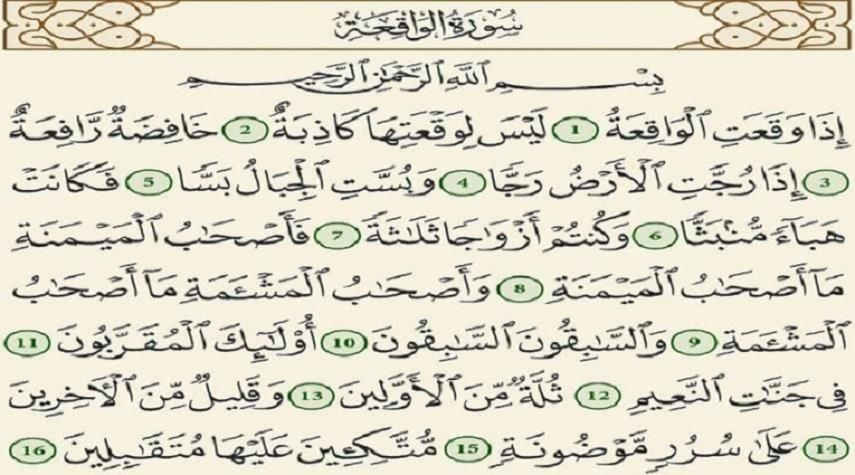 سُورَةُ الوَاقِعَةِ
بِسْمِ اللَّهِ الرَّحْمَٰنِ الرَّحِيمِ
إِذَا وَقَعَتِ الْوَاقِعَةُ 1 لَيْسَ لِوَقْعَتِهَا كَاذِبَةٌ 2 خَافِضَةٌ رَّافِعَةٌ
3 إِذَا رُجَّتِ الْأَرْضُ رَجًّا 4 وَبُسَّتِ الْجِبَالُ بَسًّا 5 فَكَانَتْ
هَبَاءً مُّنْبَثًّا 6 وَكُنتُمْ أَزْوَاجًا ثَلَاثَةً 7 فَأَصْحَابُ الْمَيْمَنَةِ
مَا أَصْحَابُ الْمَيْمَنَةِ 8 وَأَصْحَابُ الْمَشْئَمَةِ مَا أَصْحَابُ
الْمَشْئَمَةِ 9 وَالسَّابِقُونَ السَّابِقُونَ 10 أُوْلَٰئِكَ الْمُقَرَّبُونَ 11
فِي جَنَّاتِ النَّعِيمِ 12 ثُلَّةٌ مِّنَ الْأَوَّلِينَ 13 وَقَلِيلٌ مِّنَ الْآخِرِينَ
14 عَلَىٰ سُرُرٍ مَّوْضُونَةٍ 15 مُّتَّكِئِينَ عَلَيْهَا مُتَقَابِلِينَ 16